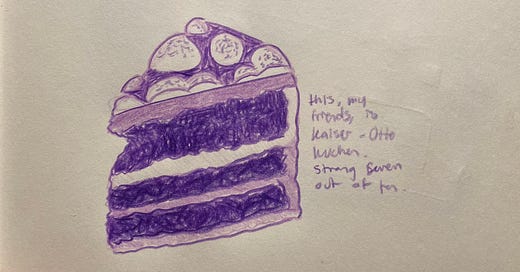 this, my
friends, is
kaiser-Otto
kuchen.
strong seven
out of ten.